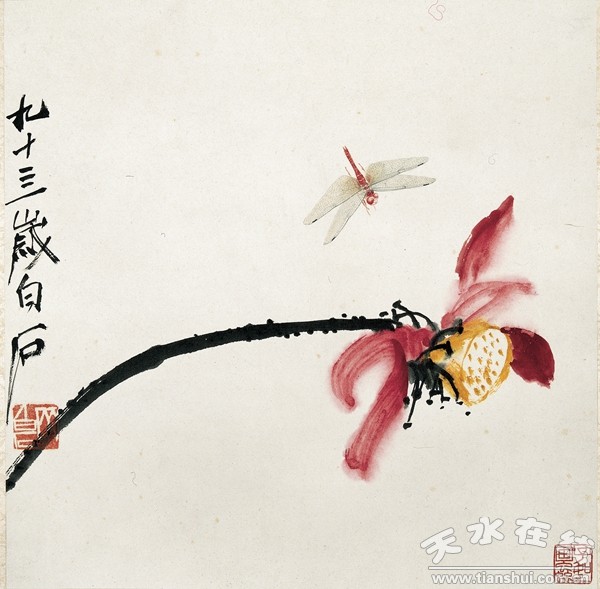 九十三歲白石
天水在线
www.tianshui.com.cn